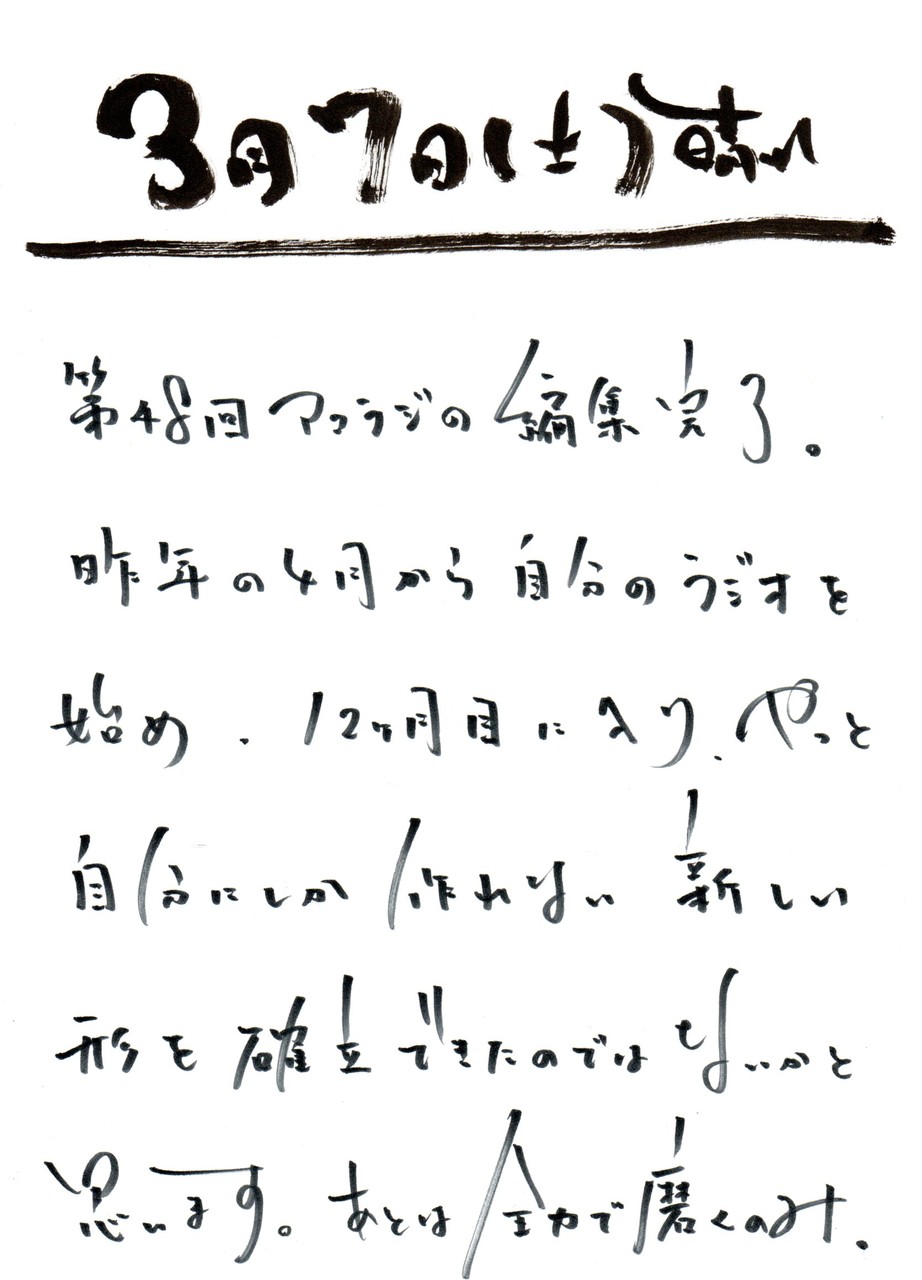 3月7日(土)晴れ
第48回アフラジの編集完了。
昨年の4月から自分のラジオを
始め、12ヶ月目に入り、やっと
自分にしか作れない新しい
形を確立できたのではないかと
思います。あとは全力で磨くのみ。